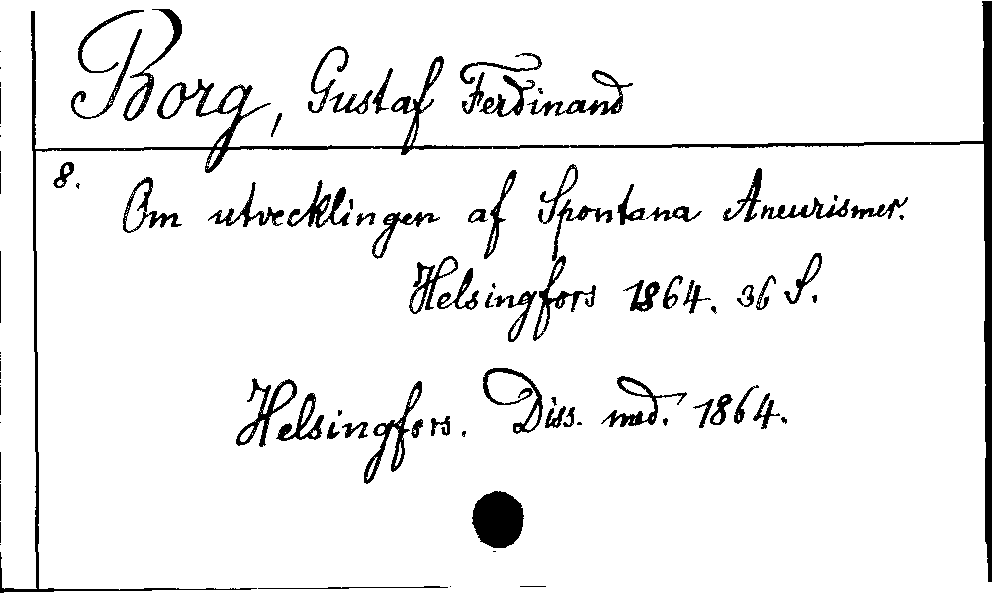 Borg, Gustaf Ferdinand
8.
Om utvecklingen af Spontana Aneurismer.
Helsingfors 1864. 36 S.
Helsingfors. Diss. med. 1864.